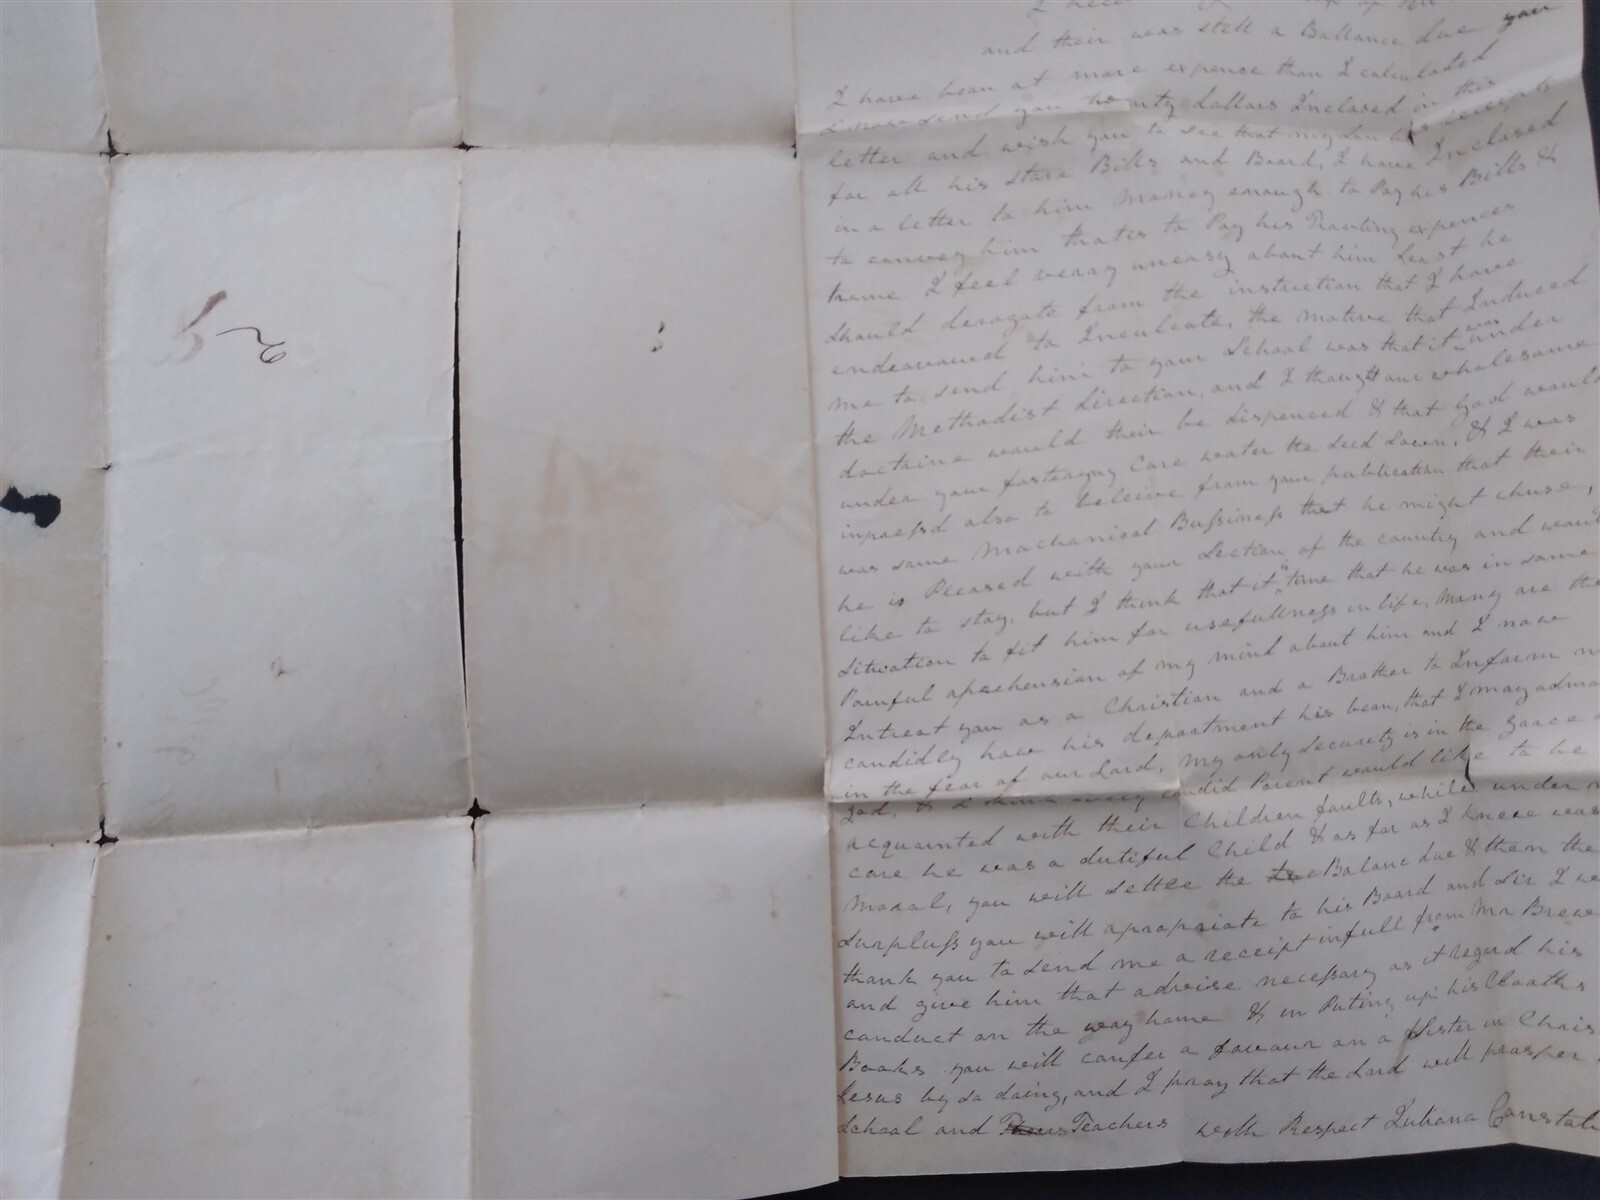 and their was still a Ballance due you
I have bean at more expence than I calculated
I now send you twenty dollars Inclosed in this
letter and wish you to see that my son has receipts
for all his store Bills and Board, I have Inclosed
in a letter to him Money enough to Pay his Bills &
to convey him that is to Pay his Travling expences
home I feel veary uneasy about him Least he
should derogate from the instruction that I have
endeavourd to Inculcate, the motive that Induced
me to send him to your School was that it was under
the Methodist direction, and I thought our wholesome
doctrine would their be dispenced & that God would
under your fostering Care water the seed sown, & I was
impressd also to beleive from your publication that their
was some Machanical Bussiness that he might chuse,
he is Pleased with your Section of the country and would
like to stay, but I think that it time that he was in some
situation to fit him for usefullness in life, Many are the
Painful aprehension of my mind about him and I now
Intreat you as a Christian and a Brother to Inform m
candidly how his department his bean, that I may admo
in the fear of our Lord, My only Security is in the grace o
God, & I think every candid Parent would like to be
acquainted with their Children faults, while under m
care he was a dutiful Child & as far as I knew was
Moral, you will settle the Due Balanc due & then the
surpluss you will apropriate to his Board and Sir I we
thank you to send me a receipt in full from Mr Brewe
and give him that advise necessary as it regard his
conduct on the way home & in Puting up his Cloaths
Books you will confer a favour on a Sister in Chris
Jesus by so doing, and I pray that the Lord will prosper
School and Teachers with Respect Juliana Constab